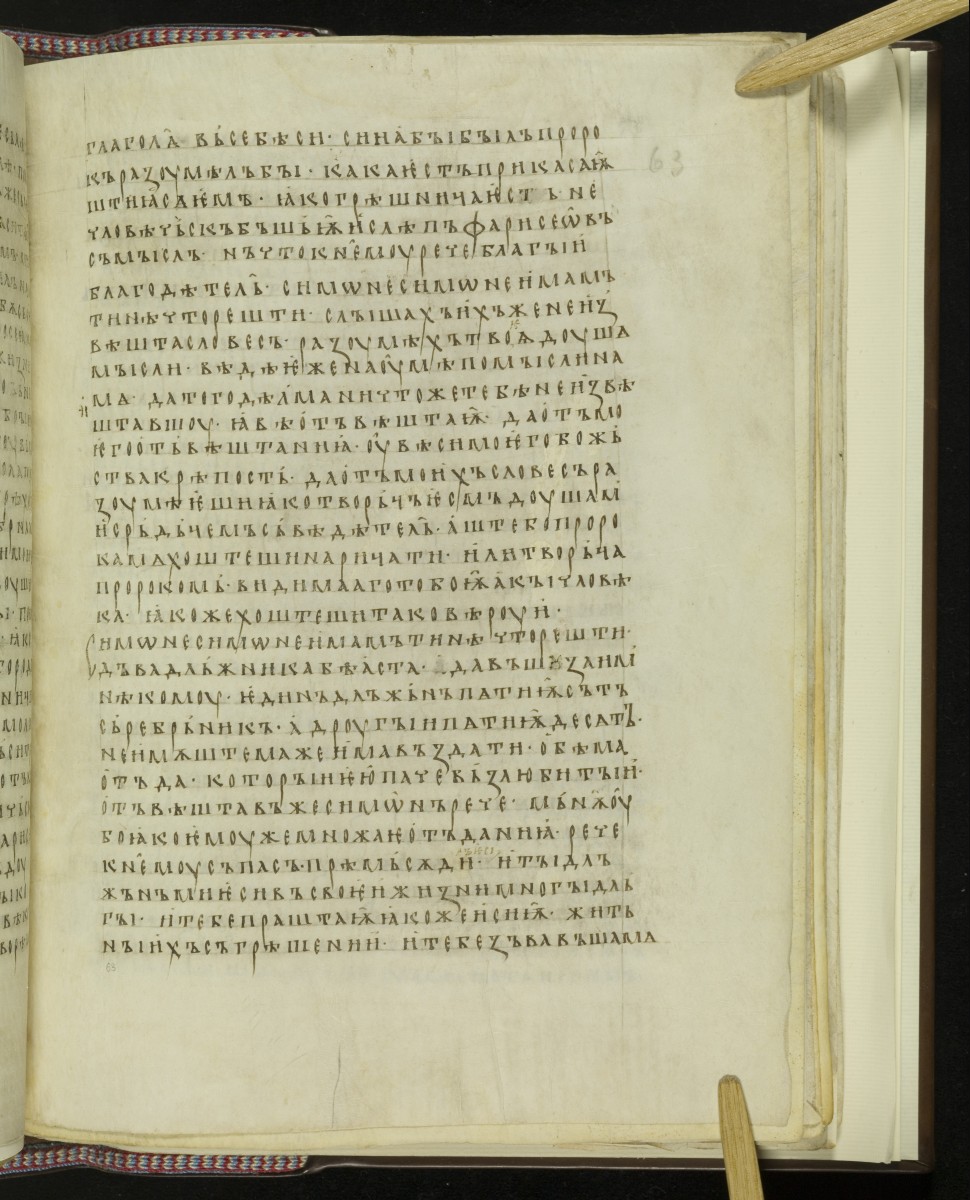 глагол҄ѧ вь себѣ си · си на бꙑ бꙑлъ проро
къ разоумѣлъ бꙑ · кака ѥстъ прикасаѭ
штиꙗ сѧ ѥмь · ꙗко грѣшьница ѥстъ не
чловѣчьскъ бѣшѧ ѭ ислѣпъ фарисеѡвъ
съмꙑслъ · нъ чьто к н҄емоу рече благꙑи
благодѣтел҄ь · симѡне симѡне имамъ
ти нѣчто решти · слꙑшахъ ихъже не из
вѣшта словесъ · разоумѣхъ твоѧ доуша
мꙑсли · вѣдѣ ѥже на оумѣ помꙑслина
ма · да того дѣл҄ма ничтоже тебѣ не извѣ
штавшоу · ꙗвѣ отъвѣштаѭ · да отъ мо
ѥго отъвѣштаниꙗ · оувѣси моѥго божь
ства крѣпость · да отъ моихъ словесъ ра
зоумѣѥши ꙗко творьць ѥсмъ доушам
и срьдьцемъ съвѣдѣтел҄ь · аште бо проро
ка мѧ хоштеши нарицати · или творьца
пророкомъ · видимааго тобоѭ акꙑ чловѣ
ка · ꙗкоже хоштеши тако вѣроуи ·
Симѡне симѡне имамъ ти нѣчто решти ·
дъва длъжьника бѣаста · да въша заими
нѣкомоу · ѥдинъ длъжьнъ пѧтиѭ сътъ
сьребрьникъ · а дроугꙑи пѧтиѭ десѧтъ ·
не имѫштема же има въздати · обѣма
отъда · которꙑи ѥю паче възлюбитъ и ·
отъвѣштавъ же симѡнъ рече · мьнѭ оу
бо ꙗко ѥмоуже множаѥ отъданиꙗ · рече
к н҄емоу съпасъ · прѣмь сѫди · и тꙑ дл
жьнъ ми ѥси въ своѥи жизни многꙑ дл
гꙑ · и тебе праштаѭ ꙗкоже и сиѭ · жить
нꙑихъ съгрѣшении · и тебе зъвавъша мѧ
63